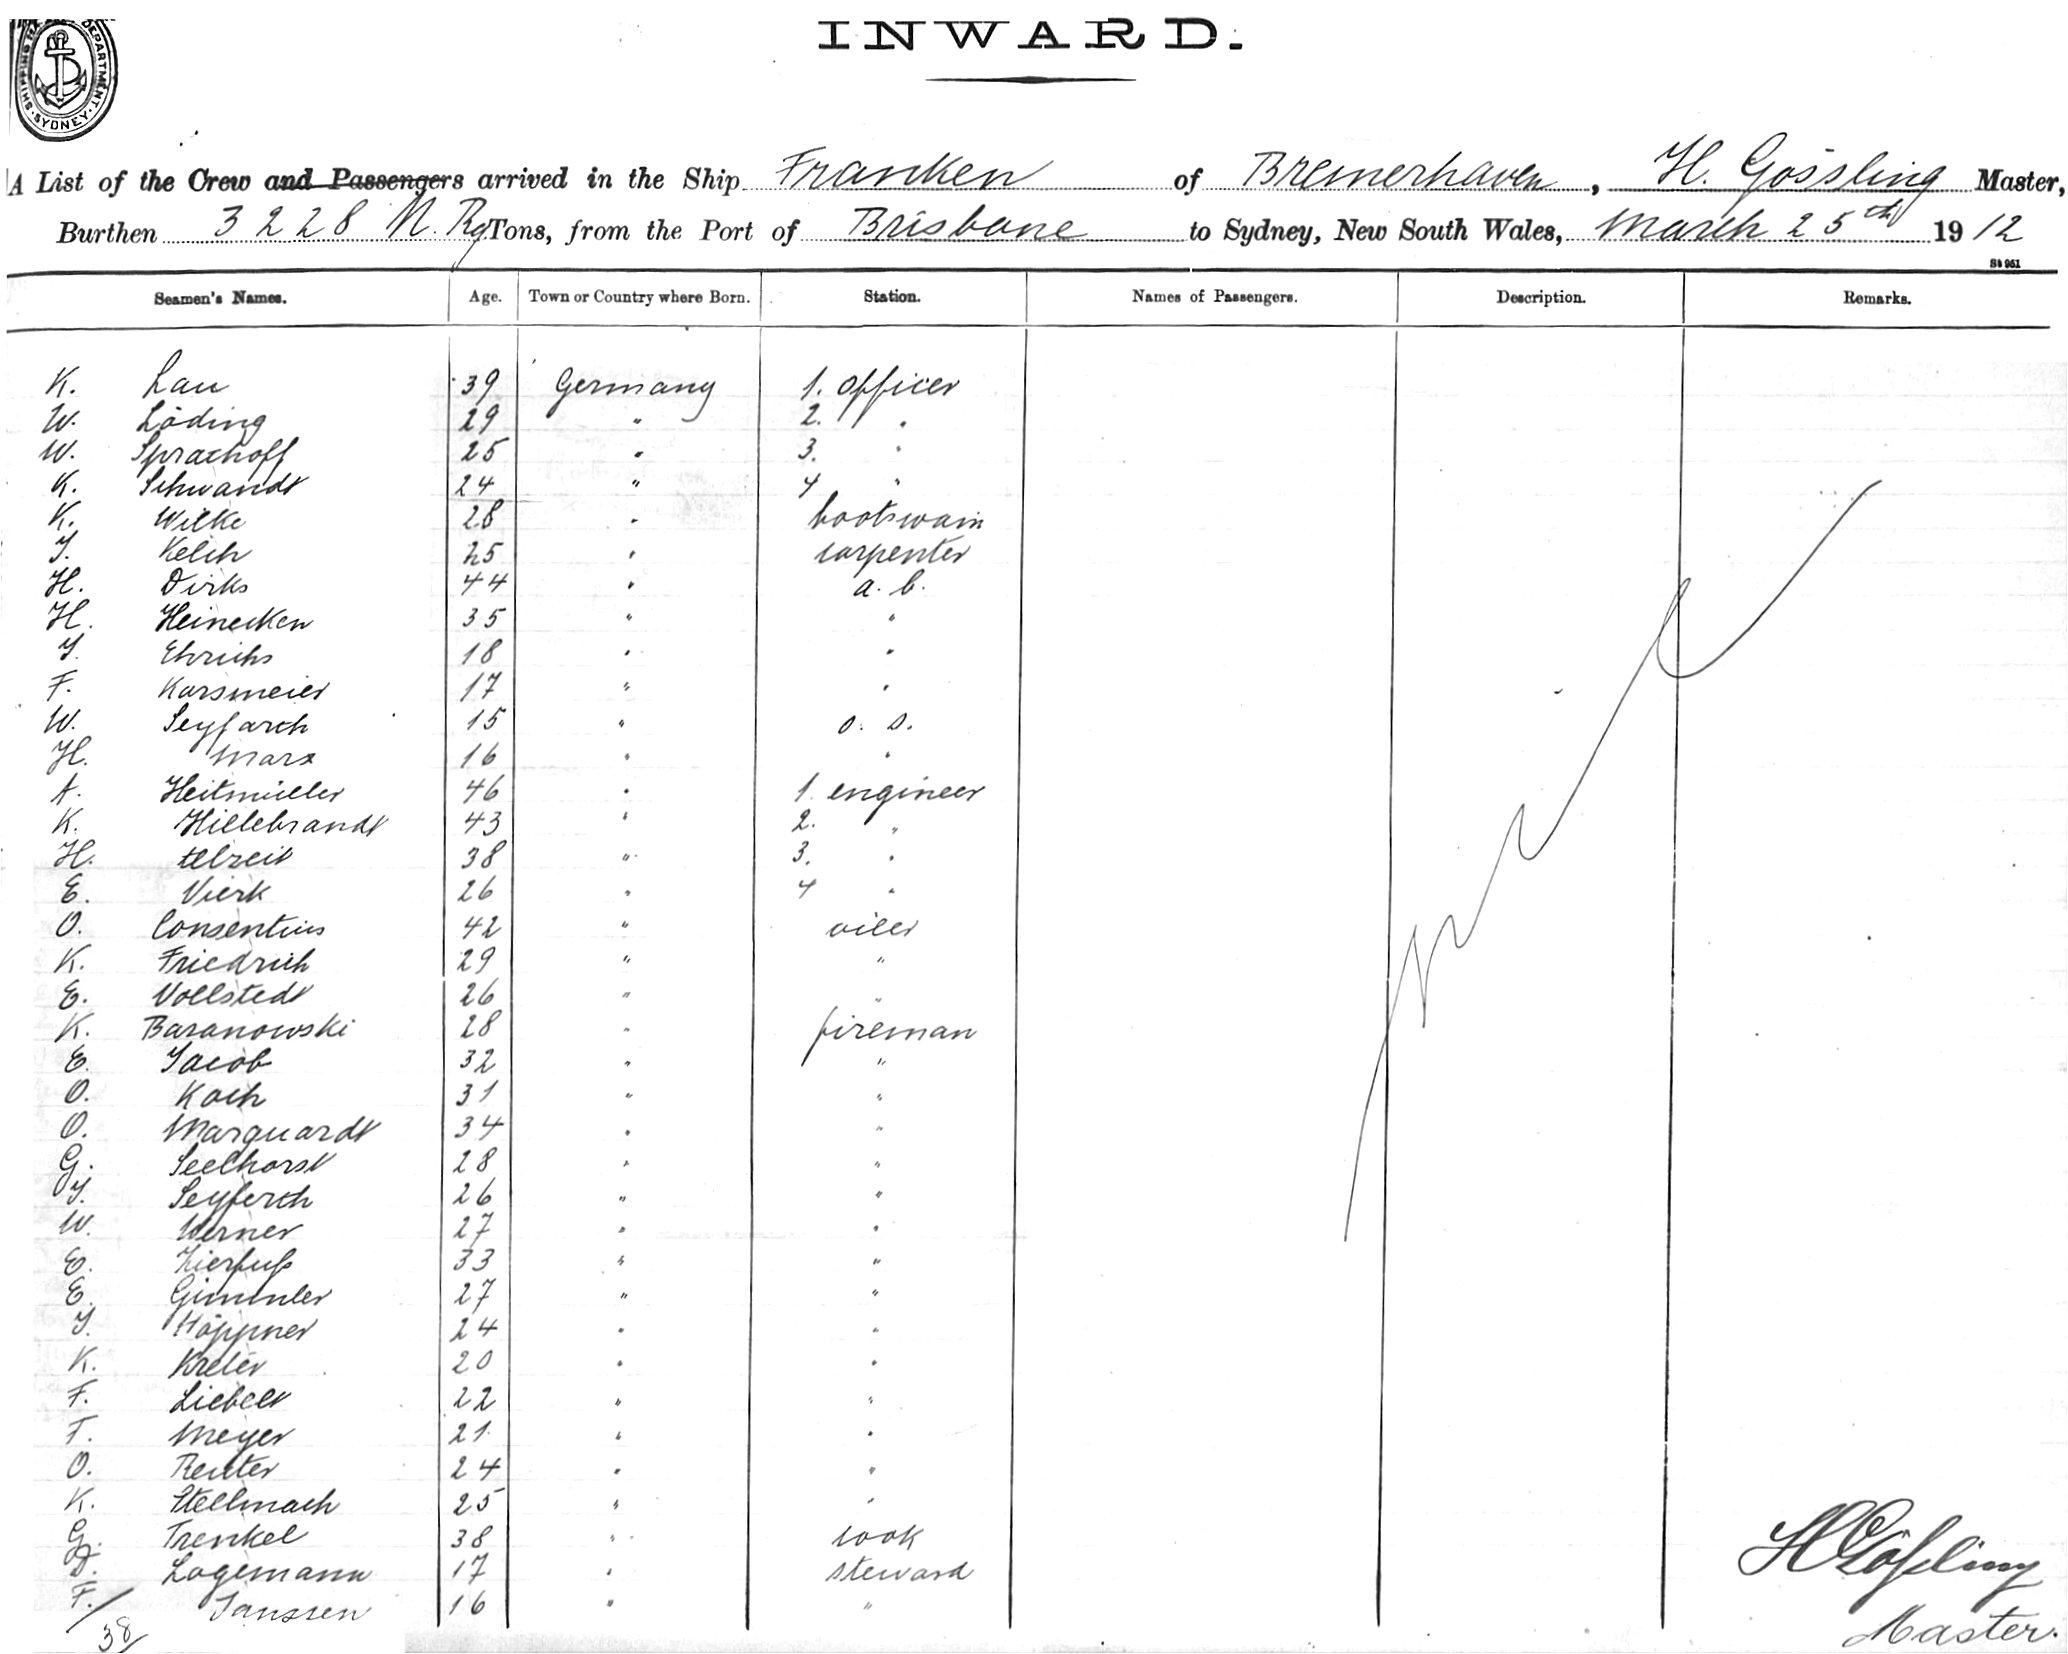 SHIPPING DEPARTMENT SYDNEY
INWARD.
A List of the Crew and Passengers arrived in the Ship Franken of Bremerhaven, H. Gössling Master,
Burthen 3228 N. Rg Tons, from the Port of Brisbane to Sydney, New South Wales, March 25th 1912
St 961
Seamen's Names. Age. Town or Country where Born. Station. Names of Passengers. Description. Remarks.
K. Lau 39 Germany 1. officer
W. Löding 29 " 2. "
W. Sprachoff 25 " 3. "
K. Schwandt 24 " 4 "
K. Wilke 28 " bootswain
J. Kelch 25 " carpenter
H. Dirks 44 " a. b.
H. Heinecken 35 " "
J. Ehrichs 18 " "
F. Karsmeier 17 " "
W. Seyfarth 15 " o. s.
H. Marx 16 " "
A. Heitmüller 46 " 1. engineer
K. Hillebrandt 43 " 2. "
H. 38 " 3. "
E. Vierk 26 " 4 "
O. Consentius 42 " oiler
K. Friedrich 29 " "
E. Vollstedt 26 " "
K. Baranowski 28 " fireman
E. Jacob 32 " "
O. Koch 31 " "
O. Marquardt 34 " "
G. Seelhorst 28 " "
J. Seyferth 26 " "
W. Werner 27 " "
E. Zierfuß 33 " "
E. Gimmler 27 " "
J. Höppner 24 " "
K. Kreter 20 " "
F. Liebelt 22 " "
F. Meyer 21 " "
O. Reuter 24 " "
K. Stellmach 25 " "
G. Trenkel 38 " cook
D. Lagemann 17 " steward
F. Janssen 16 " "
38
H Gößling
Master.